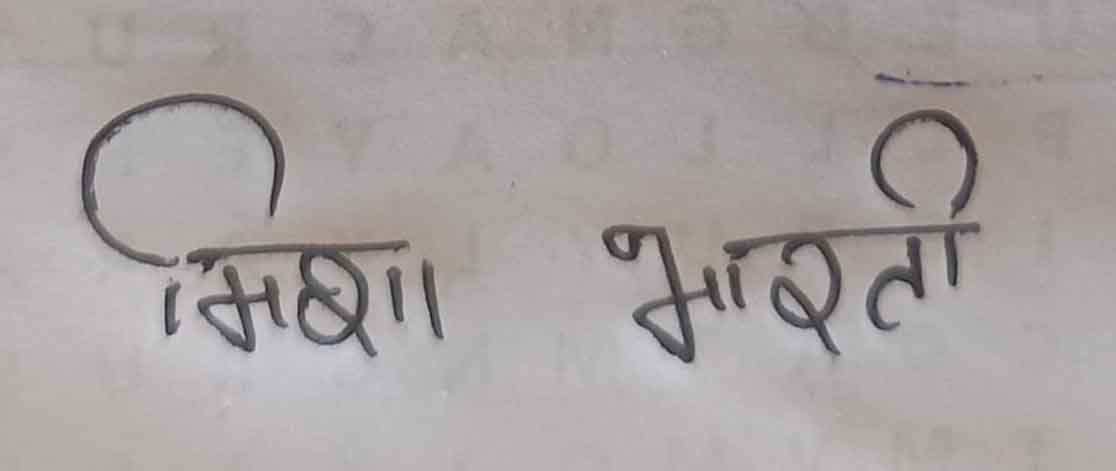 मिशा भारती